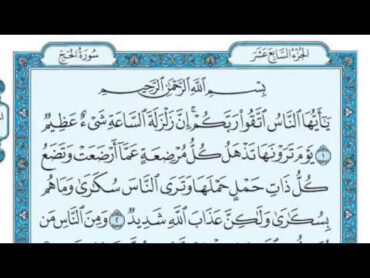 سُورَةُ الحَجِّ الجُزْءُ السَّابِعَ عَشَرَ
بِسْمِ اللَّهِ الرَّحْمَٰنِ الرَّحِيمِ
يَٰٓأَيُّهَا النَّاسُ اتَّقُوا رَبَّكُمْ ۚ إِنَّ زَلْزَلَةَ السَّاعَةِ شَيْءٌ عَظِيمٌ
١ يَوْمَ تَرَوْنَهَا تَذْهَلُ كُلُّ مُرْضِعَةٍ عَمَّآ أَرْضَعَتْ وَتَضَعُ
كُلُّ ذَاتِ حَمْلٍ حَمْلَهَا وَتَرَى النَّاسَ سُكَٰرَىٰ وَمَا هُم
بِسُكَٰرَىٰ وَلَٰكِنَّ عَذَابَ اللَّهِ شَدِيدٌ ٢ وَمِنَ النَّاسِ مَن